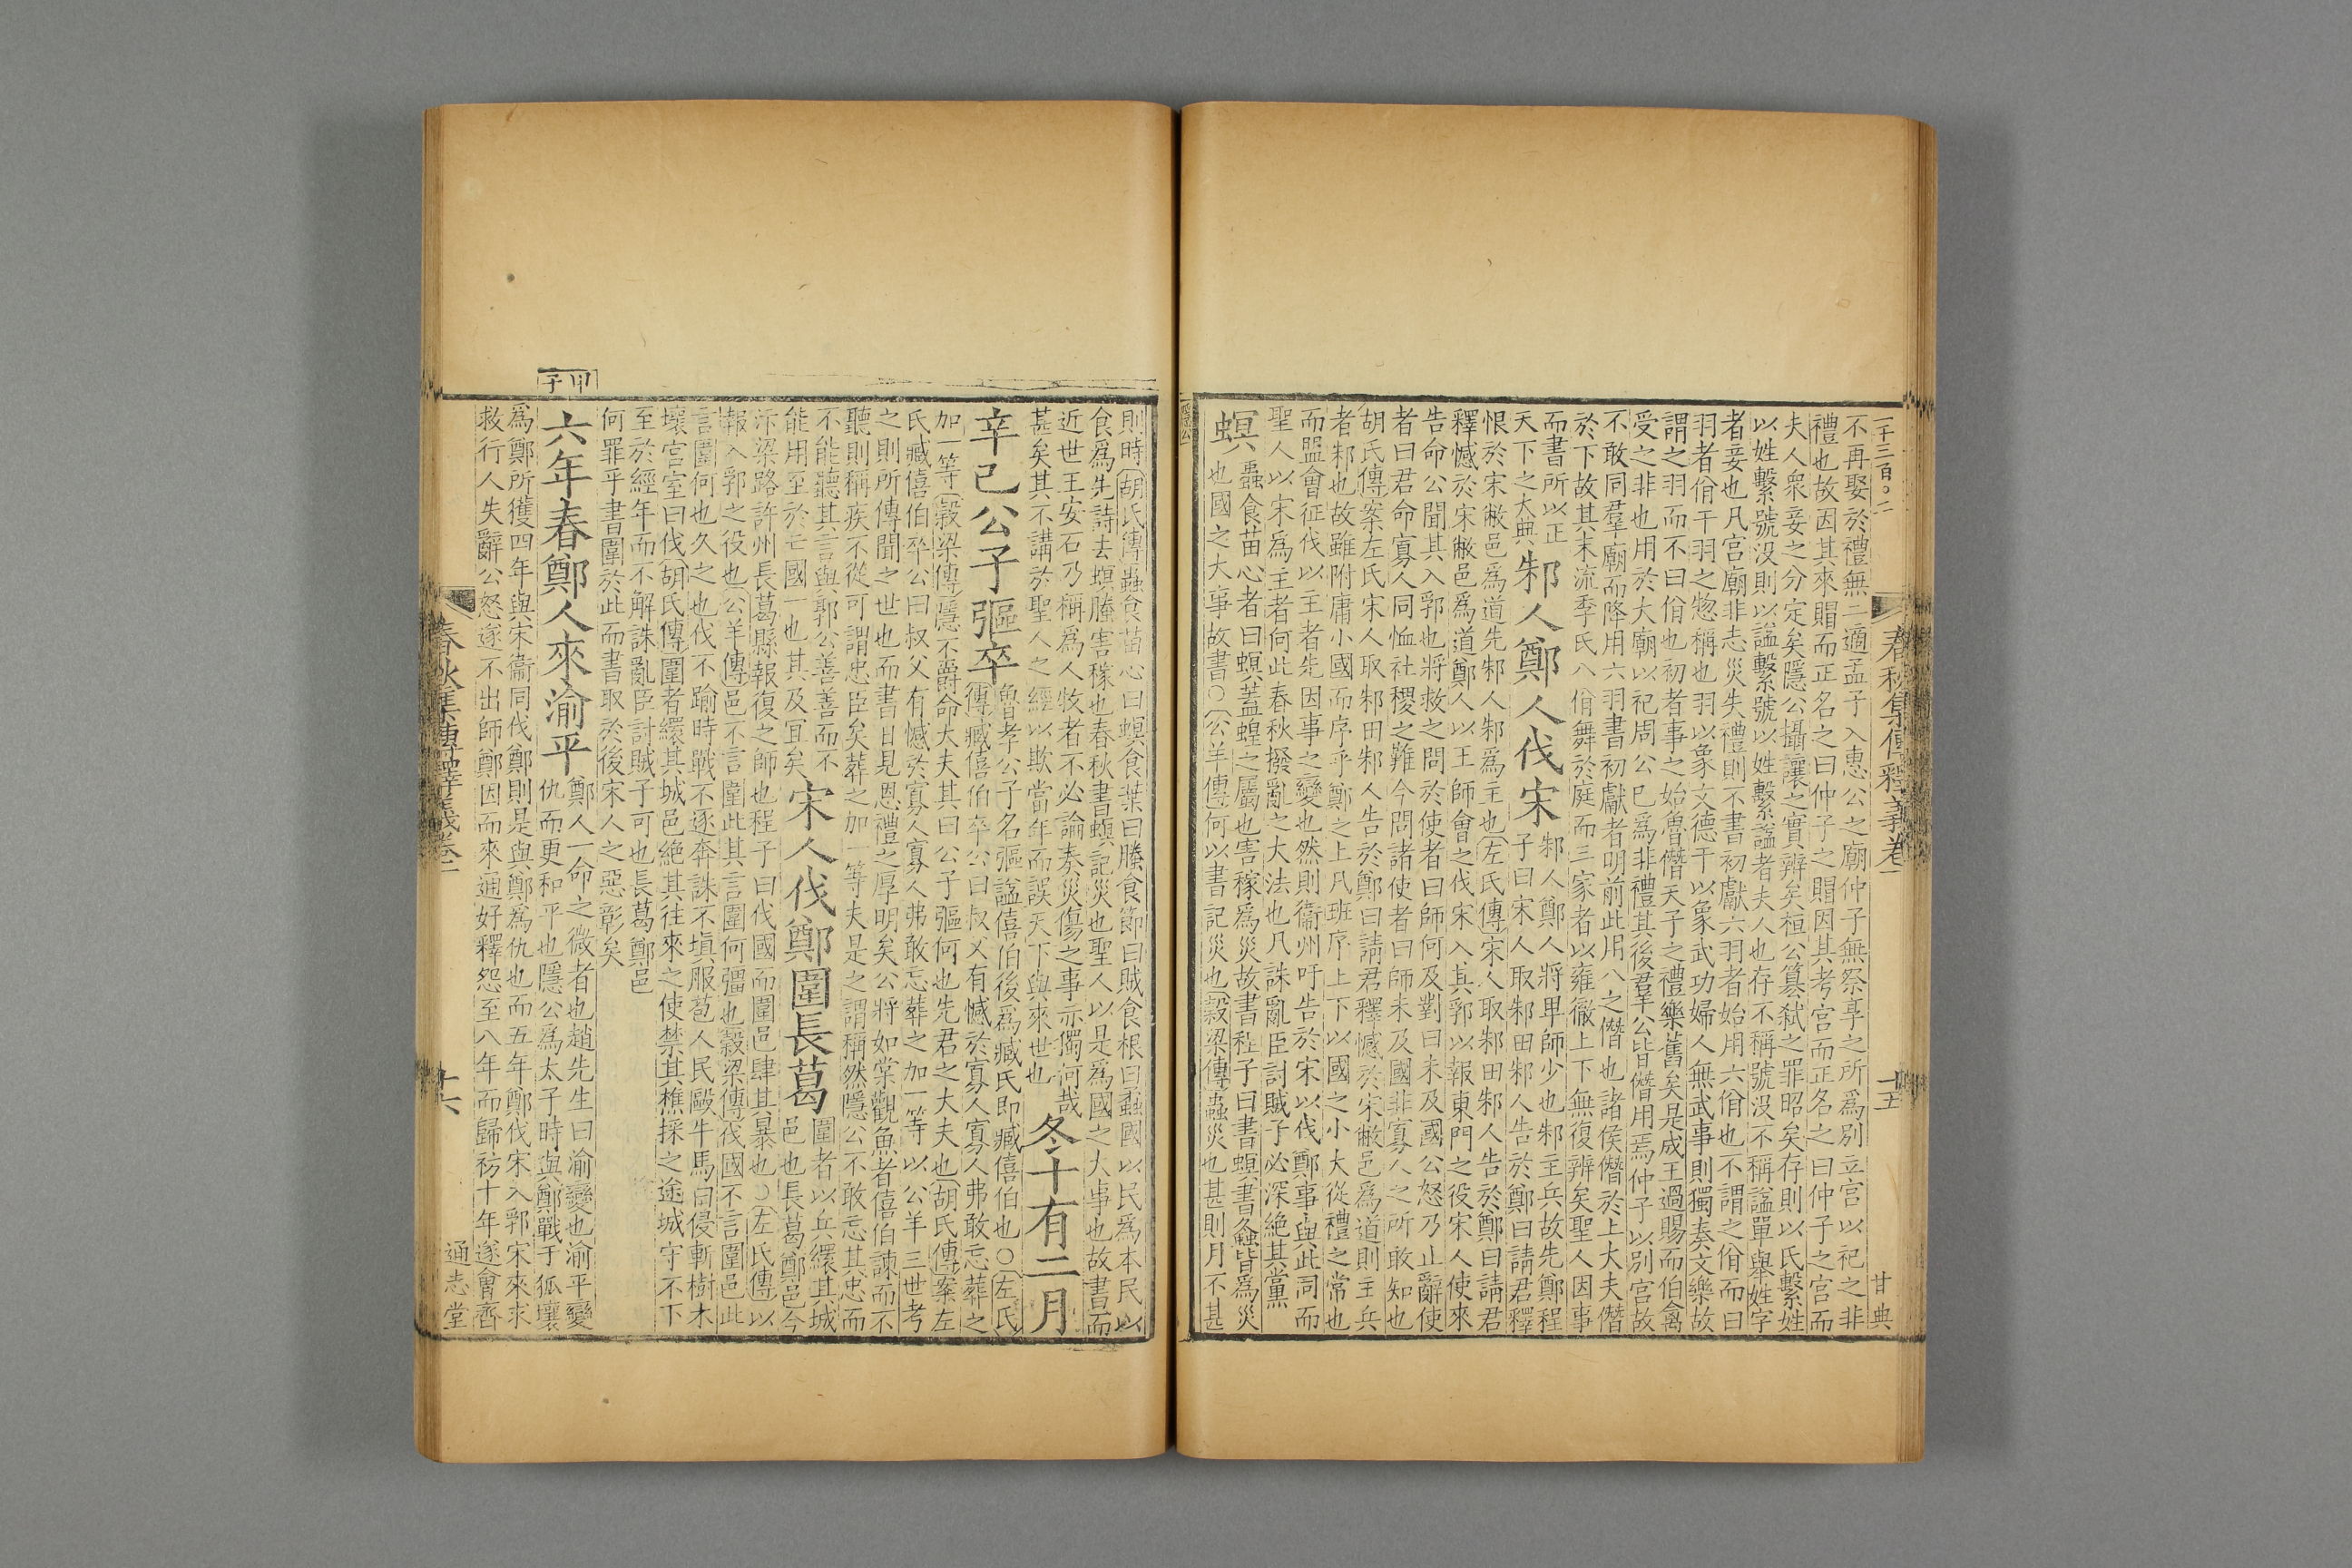 二千三百○二
春秋集傳釋義卷一
十五
甘典
不再娶於禮無二適孟子入惠公之廟仲子無祭享之所爲別立宮以祀之非
禮也故因其來賵而正名之曰仲子之賵因其考宮而正名之曰仲子之宮而
夫人衆妾之分定矣隱公攝讓之實辨矣桓公簒弑之罪昭矣存則以氏繫姓
以姓繫號没則以謚繫號以姓繫謚者夫人也存不稱號没不稱謚單舉姓字
者妾也凡宮廟非志災失禮則不書初獻六羽者始用六佾也不謂之佾而曰
羽者佾干羽之惣稱也羽以象文德干以象武功婦人無武事則獨奏文樂故
謂之羽而不曰佾也初者事之始魯僭天子之禮樂舊矣是成王過賜而伯禽
受之非也用於大廟以祀周公已爲非禮其後羣公皆僭用焉仲子以别宮故
不敢同羣廟而降用六羽書初獻者明前此用八之僭也諸侯僭於上大夫僭
於下故其末流季氏八佾舞於庭而三家者以雍徹上下無復辨矣聖人因事
而書所以正
天下之大典
邾人鄭人伐宋
邾人鄭人將卑師少也邾主兵故先鄭程
子曰宋人取邾田邾人告於鄭曰請君釋
恨於宋敝邑爲道先邾人邾爲主也左氏傳宋人取邾田邾人告於鄭曰請君
釋憾於宋敝邑爲道鄭人以王師會之伐宋入其郛以報東門之役宋人使來
告命公聞其入郛也將救之問於使者曰師何及對曰未及國公怒乃止辭使
者曰君命寡人同恤社稷之難今問諸使者曰師未及國非寡人之所敢知也
胡氏傳案左氏宋人取邾田邾人告於鄭曰請君釋憾於宋敝邑爲道則主兵
者邾也故雖附庸小國而序乎鄭之上凡班序上下以國之小大從禮之常也
而盟會征伐以主者先因事之變也然則衞州吁告於宋以伐鄭事與此同而
聖人以宋爲主者何此春秋撥亂之大法也凡誅亂臣討賊子必深絶其黨
螟
蟲食苗心者曰螟蓋蝗之屬也害稼爲災故書程子曰書螟書螽皆爲災
也國之大事故書○公羊傳何以書記災也榖梁傳蟲災也甚則月不甚
則時胡氏傳蟲食苗心曰螟食葉曰螣食節曰賊食根曰蟊國以民爲本民以
食爲先詩去螟螣害稼也春秋書螟記災也聖人以是爲國之大事也故書而
近世王安石乃稱爲人牧者不必論奏災傷之事亦獨何哉
甚矣其不講於聖人之經以欺當年而誤天下與來世也
冬十有二月
辛巳公子彄卒
魯孝公子名彄謚僖伯後爲臧氏即臧僖伯也○左氏
傳臧僖伯卒公曰叔父有憾於寡人寡人弗敢忘葬之
加一等榖梁傳隱不爵命大夫其曰公子彄何也先君之大夫也胡氏傳案左
氏臧僖伯卒公曰叔父有憾於寡人寡人弗敢忘葬之加一等以公羊三世考
之則所傳聞之世也而書日見恩禮之厚明矣公將如棠觀魚者僖伯諫而不
聽則稱疾不從可謂忠臣矣葬之加一等夫是之謂稱然隱公不敢忘其忠而
不能聽其言與郭公善善而不
能用至於亡國一也其及宜矣
宋人伐鄭圍長葛
圍者以兵繯其城
邑也長葛鄭邑今
汴梁路許州長葛縣報復之師也程子曰伐國而圍邑肆其暴也○左氏傳以
報入郛之役也公羊傳邑不言圍此其言圍何彊也榖梁傳伐國不言圍邑此
言圍何也久之也伐不踰時戰不逐奔誅不塡服苞人民毆牛馬曰侵斬樹木
壞宮室曰伐胡氏傳圍者繯其城邑絶其往來之使禁其樵採之途城守不下
至於經年而不解誅亂臣討賊子可也長葛鄭邑
何罪乎書圍於此而書取於後宋人之惡彰矣
甲子
六年春鄭人來渝平
鄭人一命之微者也趙先生曰渝變也渝平變
仇而更和平也隱公爲太子時與鄭戰于狐壤
爲鄭所獲四年與宋衞同伐鄭則是與鄭爲仇也而五年鄭伐宋入郛宋來求
救行人失辭公怒遂不出師鄭因而來通好釋怨至八年而歸祊十年遂會齊
十六
通志堂